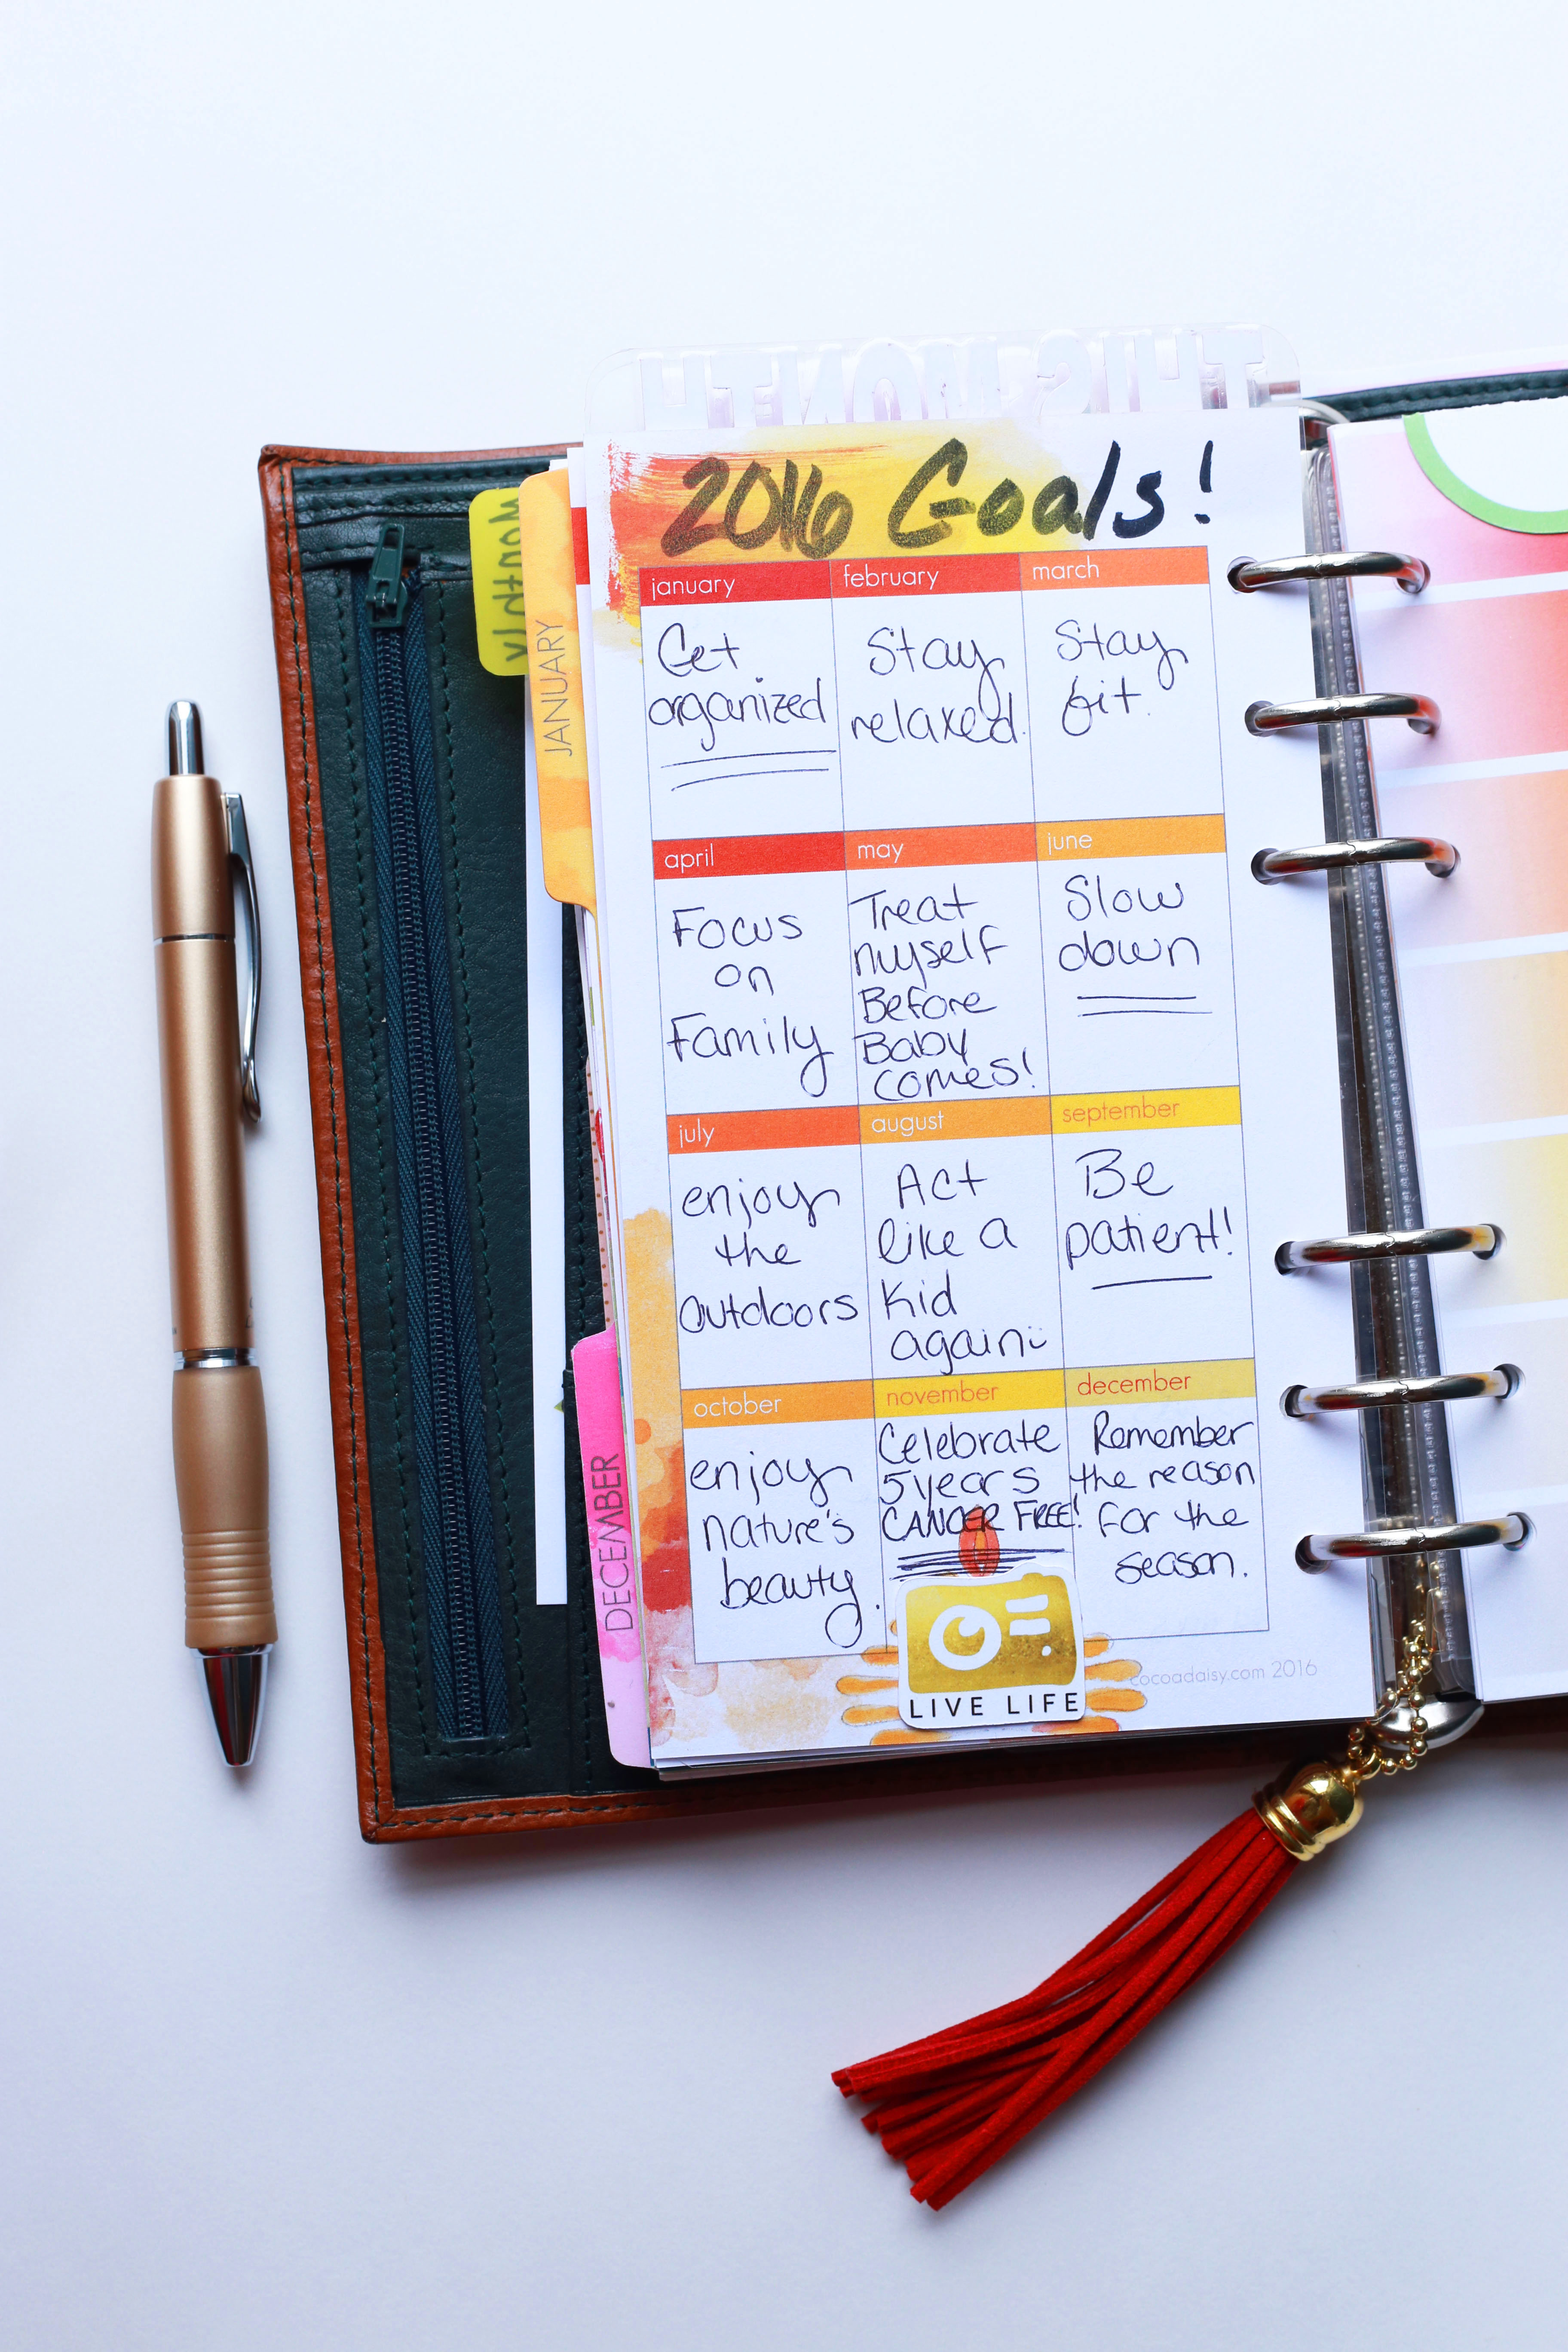 THIS MONTH
2016 Goals!
january
Get
organized
february
Stay
relaxed.
march
Stay
fit.
april
Focus
on
Family
may
Treat
myself
Before
Baby
comes!
june
Slow
down
july
enjoy
the
outdoors
august
Act
like a
kid
again:
september
Be
patient!
october
enjoy
nature's
beauty.
november
Celebrate
5 years
CANCER FREE!
december
Remember
the reason
for the
season.
LIVE LIFE
cocoadaisy.com 2016
Monthly
JANUARY
DECEMBER